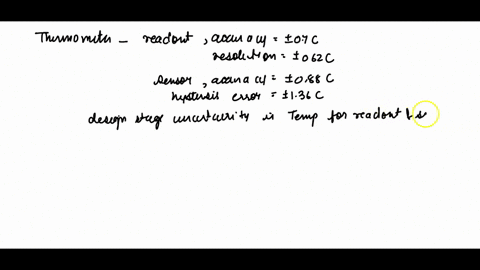 Thermometer - readout, accuracy = ±0.7 C
resolution = ±0.62 C
sensor, accuracy = ±0.88 C
hystersis error = ±1.36 C
design stage uncertainity in Temp for readout & s